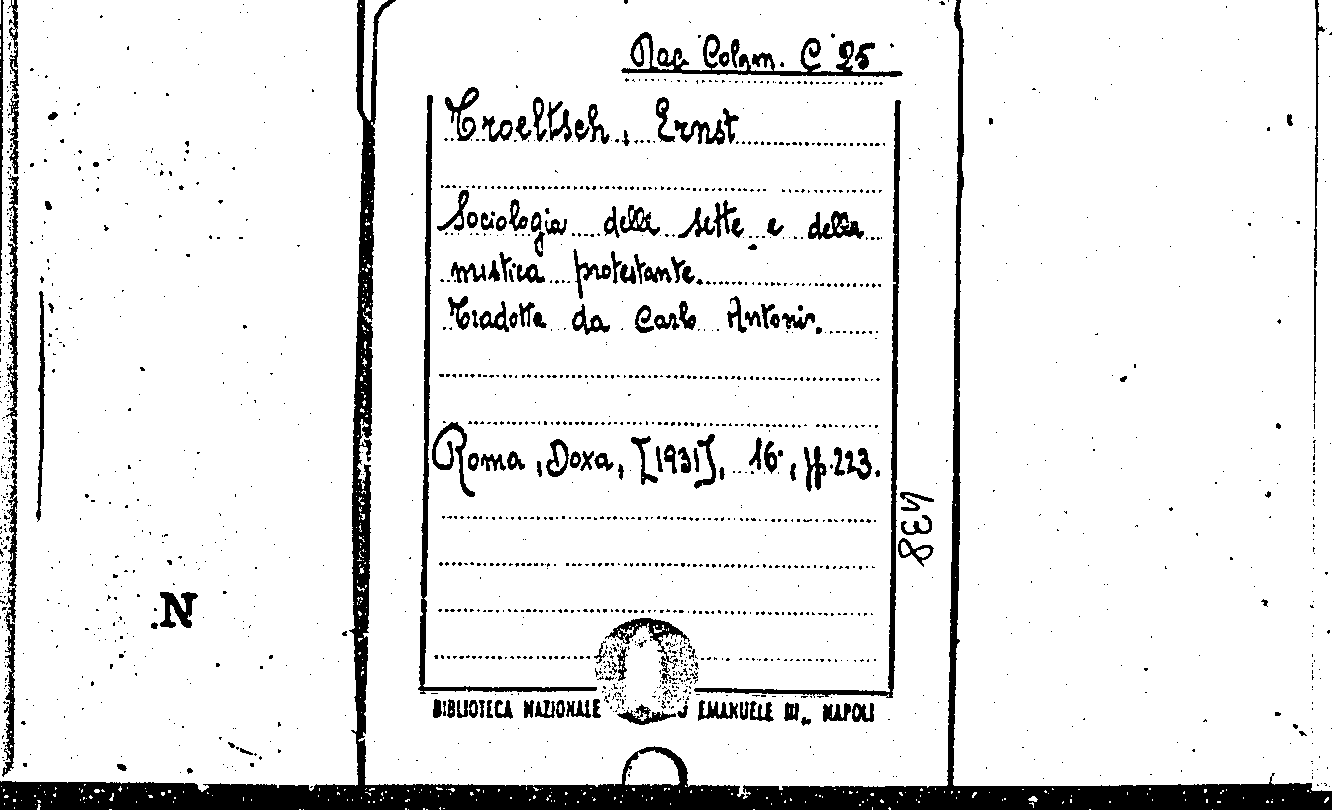 Rac. Colam. C 25
Troeltsch, Ernst
Sociologia delle sette e della
mistica protestante.
Tradotta da Carlo Antoni.
Roma, Doxa, [1931], 16°, pp. 223.
438
N
BIBLIOTECA NAZIONALE EMANUELE III„ NAPOLI